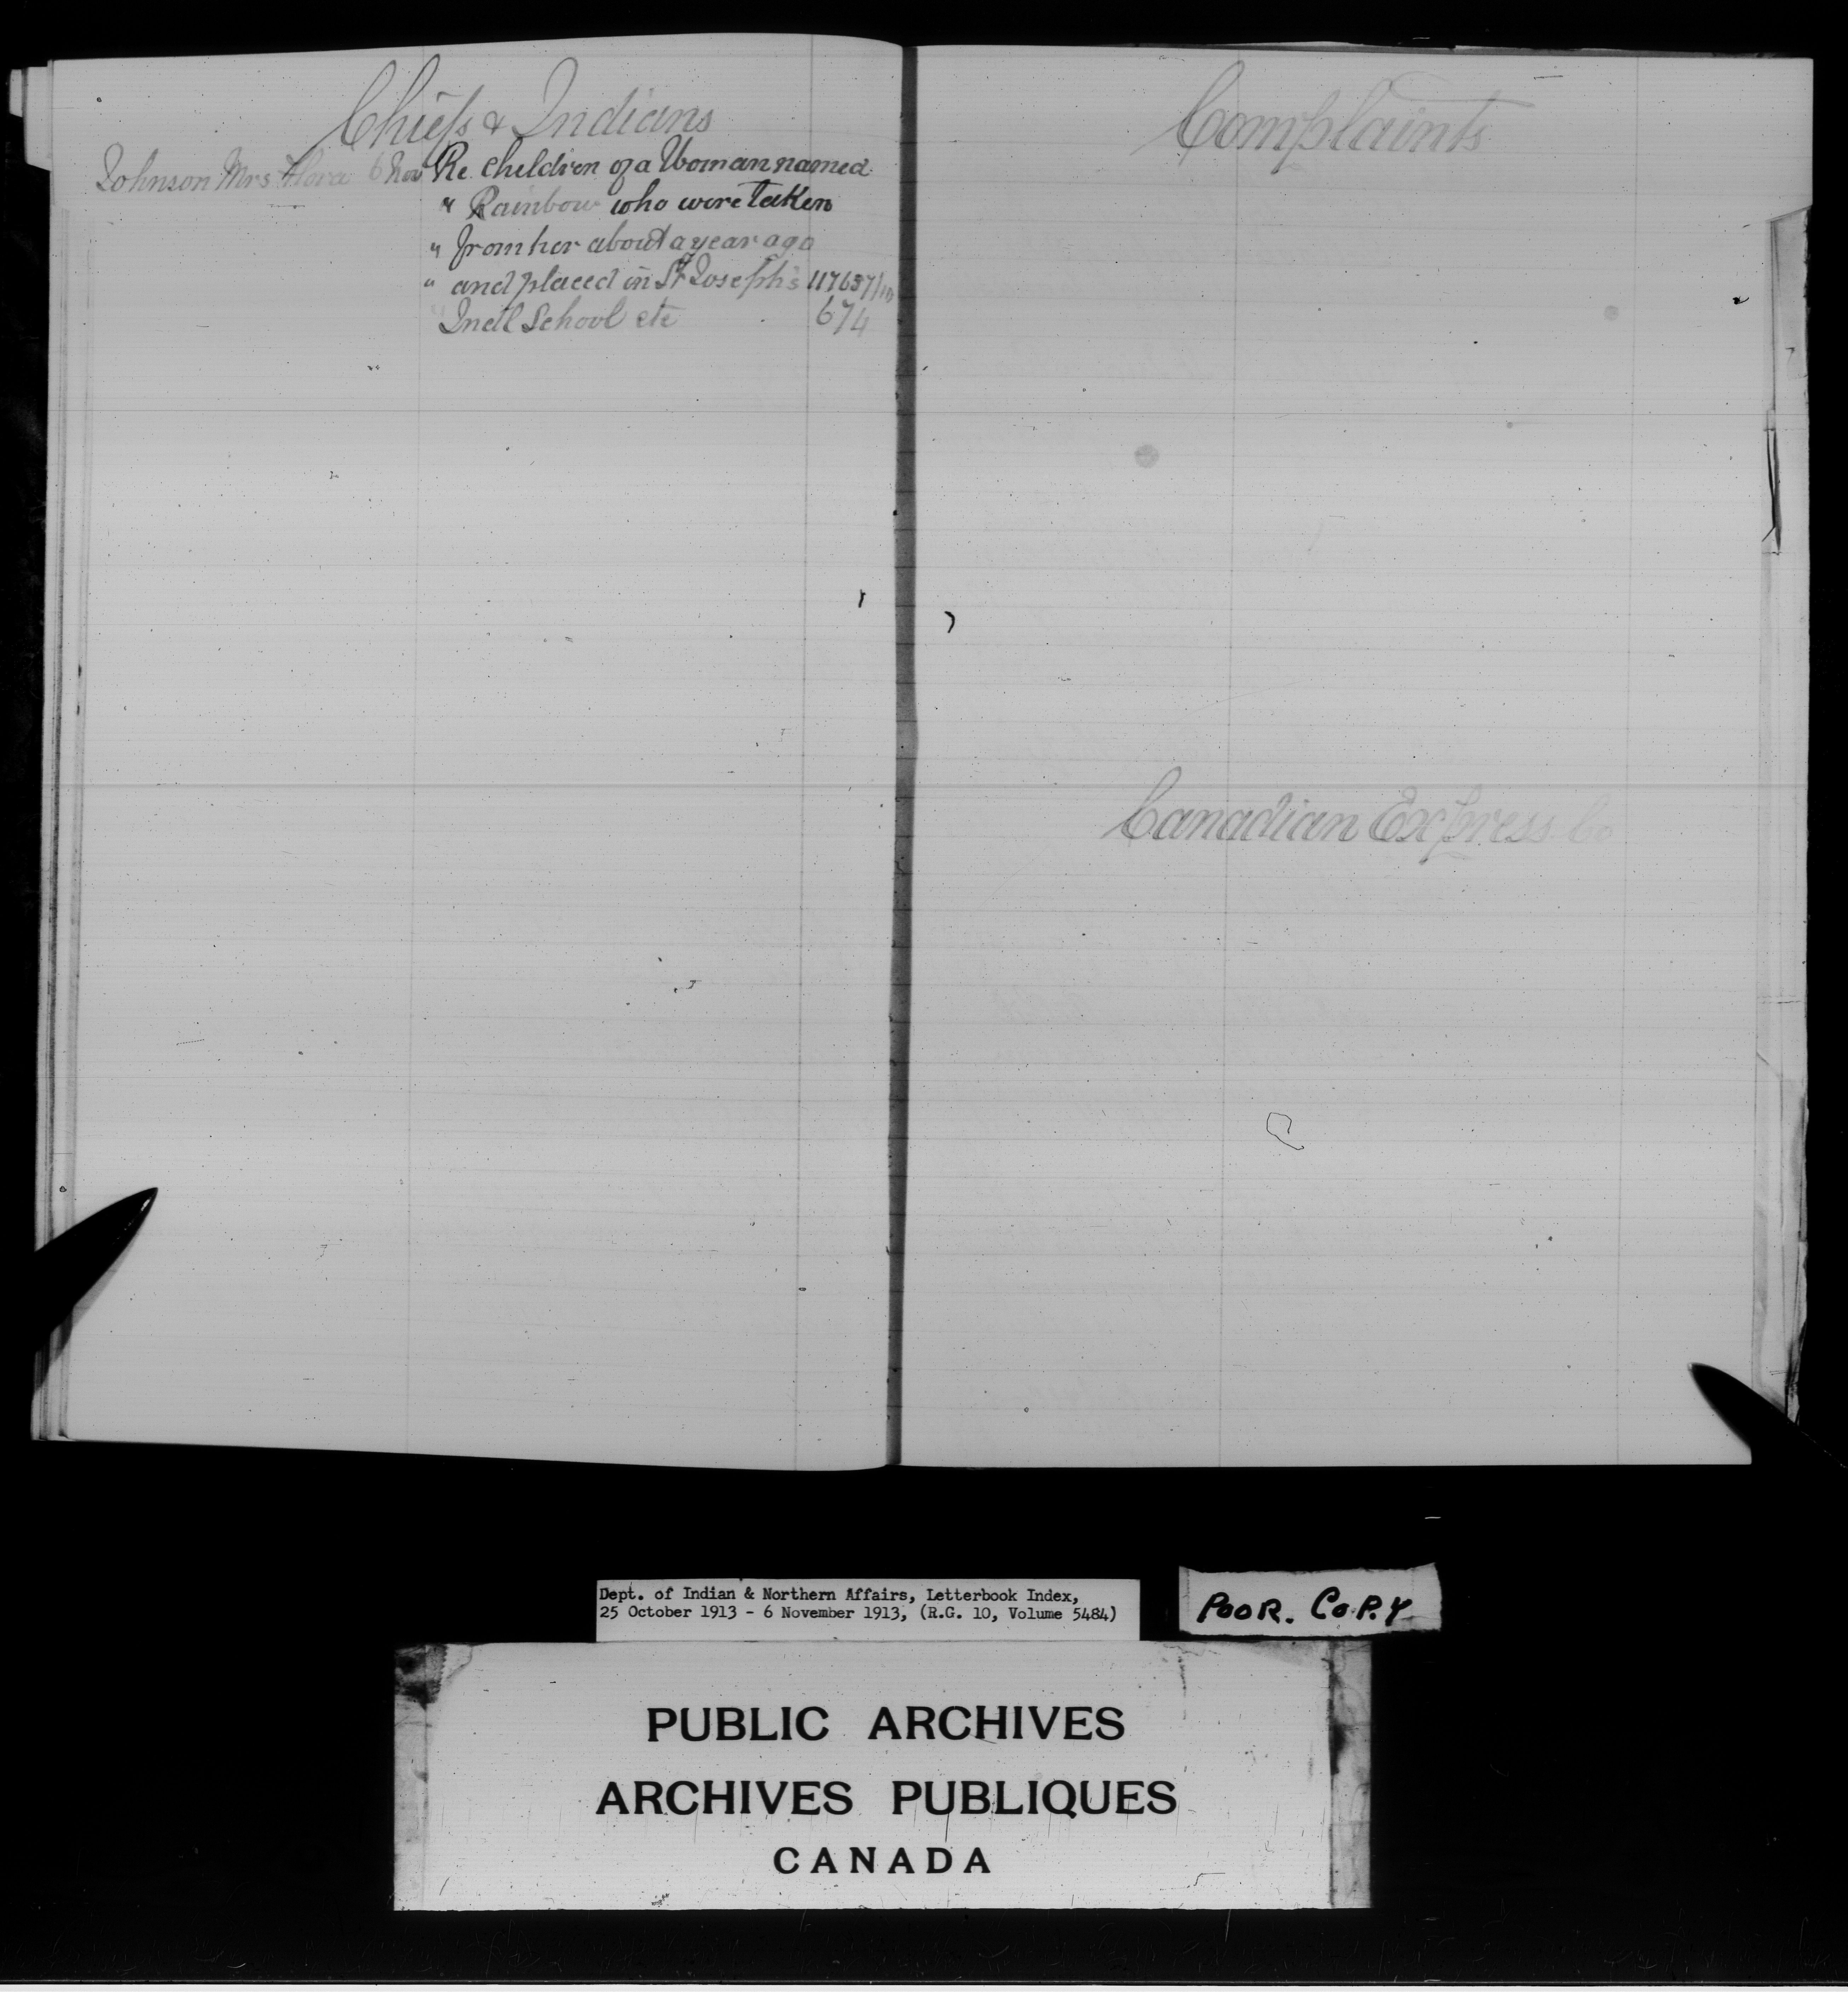 Chiefs & Indians
Johnson Mrs Flora 6 Nov Re Children of a Woman named
" Rainbow who were taken
" from her about a year ago
" and placed in St Joseph's 117637/10
" Indl School etc 674
Complaints
Canadian Express Co
Dept. of Indian & Northern Affairs, Letterbook Index,
25 October 1913 - 6 November 1913, (R.G. 10, Volume 5484)
POOR. COPY
PUBLIC ARCHIVES
ARCHIVES PUBLIQUES
CANADA